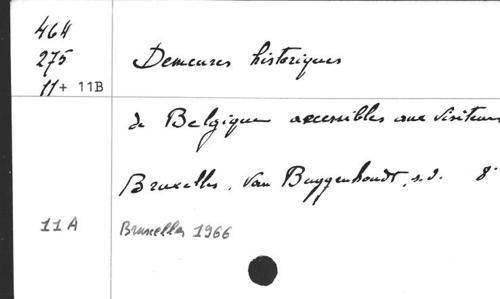 464
275 Demeures historiques
11 + 11B
de Belgique accessibles aux visiteurs
Bruxelles, Van Buggenhoudt, s.d. 8°
11A Bruxelles 1966